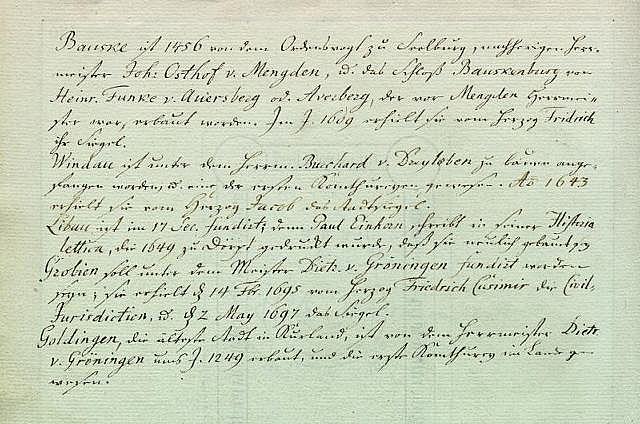 Bauske ist 1456 von dem Ordensvogt zu Seelburg, nachherigen Herr-
meister Joh: Osthof v. Mengden, u. das Schloß Bauskenburg von
Heinr. Funke v. Auersberg od. Averberg, der vor Mengden Herrmei-
ster war, erbaut worden. Im J. 1609 erhielt sie vom Herzog Fridrich
ihr Siegel.
Windau ist unter dem Herrm. Burchard v. Dreyleben zu bauen ange-
fangen worden u. eine der ersten Komthureyen gewesen. Ao 1643
erhielt sie vom Herzog Jacob das Stadtsiegel.
Libau ist im 17 Sec. fundirt; denn Paul Einhorn schreibt in seiner Historia
lettica, die 1649 zu Dorpt gedruckt wurde, daß sie neulich gebaut sey
Grobien soll unter dem Meister Dietr. v. Gröningen fundirt worden
seyn; sie erhielt d 14 Fbr. 1695 vom Herzog Friedrich Casimir die Civil-
Jurisdiction, u. d 2 May 1697 das Siegel.
Goldingen, die älteste Stadt in Kurland, ist von dem Herrmeister Dietr.
v. Gröningen ums J. 1249 erbaut, und die erste Komthurey im Lande ge-
wesen.